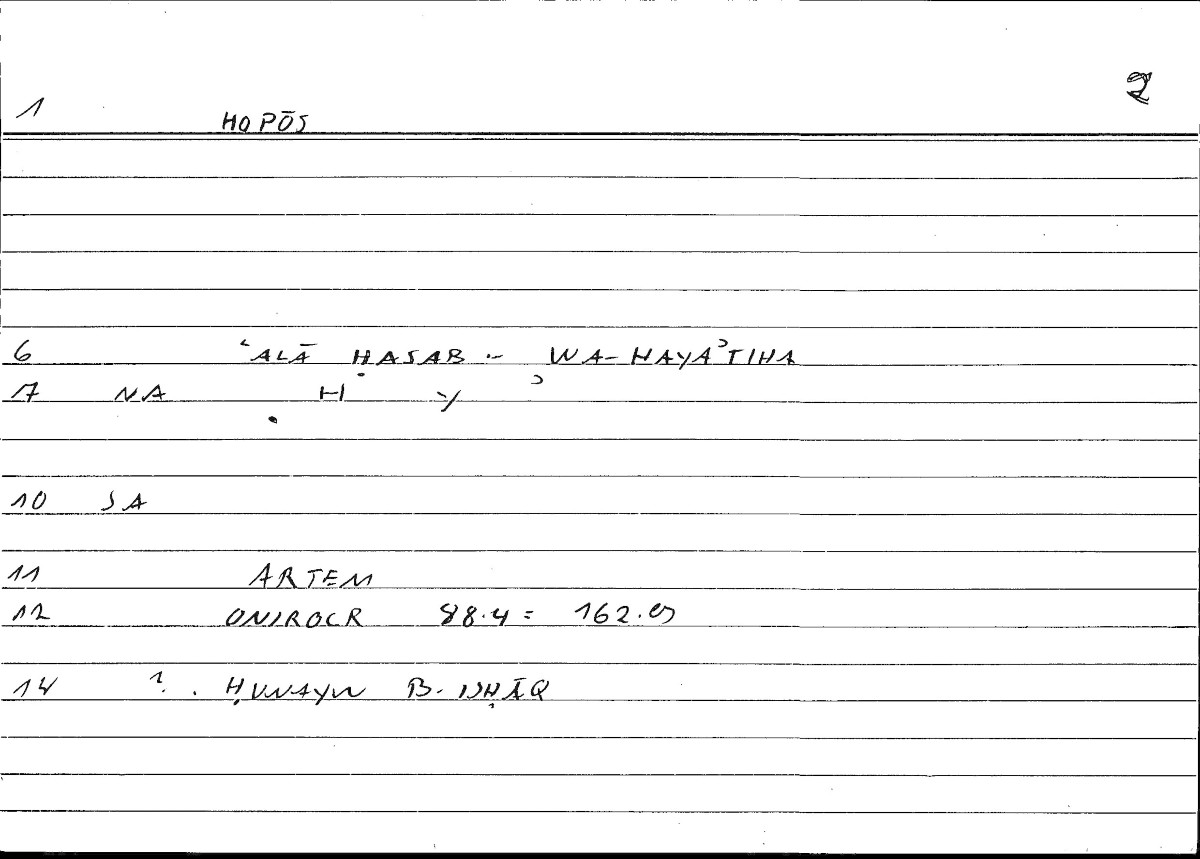 2
1 HOPŌS
6 ʿALĀ ḤASAB -- WA-HAYAʾTIHA
7 NA Ḥ Y ʾ
10 SA
11 ARTEM
12 ONIROCR 88.4 = 162.
14 ?. ḤUNAYN B. ISḤĀQ